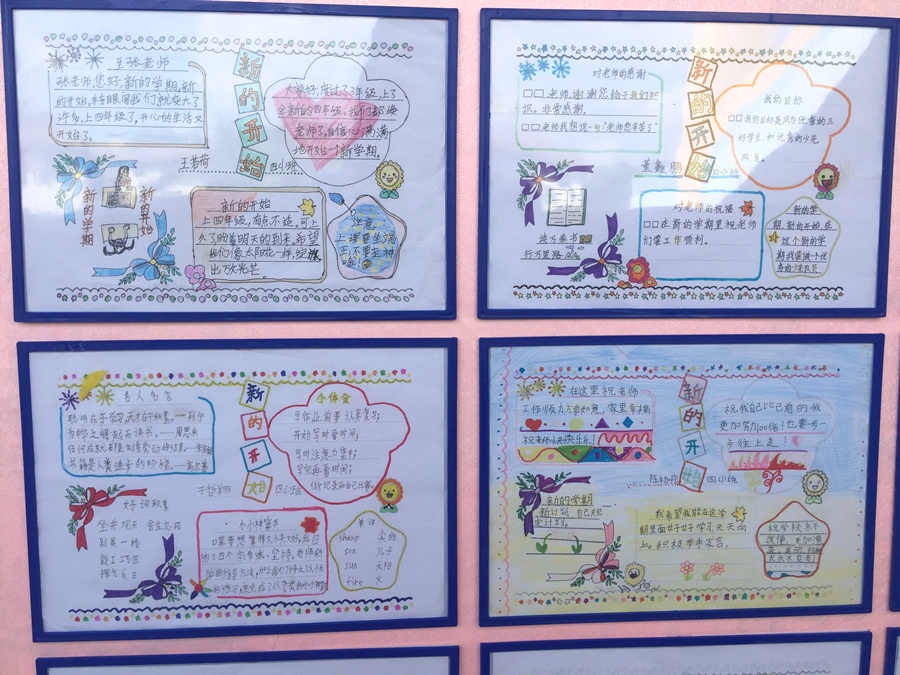 至张老师
张老师,您好,新的学期,新
的开始,转眼间我们就长大了
许多,上四年级了,开心的生活又
开始了。
新的开始
大家好,度过了3年级,上了
全新的四年级,我们都给
老师了,自信心满满
地开始一个新学期。
王若荷
四小班
新的学期
新的开始
新的开始
上四年级,有点不适,可上
久了盼着明天的到来,希望
我们像太阳花一样,绽放
出飞光芒。
注意,
上课要坐端
正不要走神
啦!
对老师的感谢
□□老师,谢谢您给予我们知
识。非常感谢。
□□老师我想说一句"老师您辛苦了"
新的开始
我的目标
□□我的目标是成为优秀的三
好学生,和优秀的少先
队员。
董鑫
四小班
读万卷书
行万里路
对老师的祝福
□□在新的学期里祝老师
们要工作顺利。
新的学
期,新的开始,在
这个新的学
期我要做个优
秀的少先队员
名人名言
聪明在于学习,天才在于积累。
为中华之崛起而读书。——周恩来
书籍是人类进步的阶梯。——高尔基
新的开始
小体会
写作业前要认真复习;
开始写时看时间;
写时注意力集中;
写完再看时间;
做好记录和自己比赛。
四小班
好词积累
坐井观天 舍生忘死
别具一格
能工巧匠
小小种豆王
单词
sheep
son 儿子
sun 太阳
fire 火
在这里祝老师
工作顺利万事如意,家里幸福
祝老师永远快快乐乐!
新的开始
祝我自己比已前的我
更加努力100倍!也要一步一
步往上走!
四小班
新的学期
新计划 自己定
定计划。
我希望我能在这学
期里面好好学习天天向
上。积极举手发言,
祝学校永不